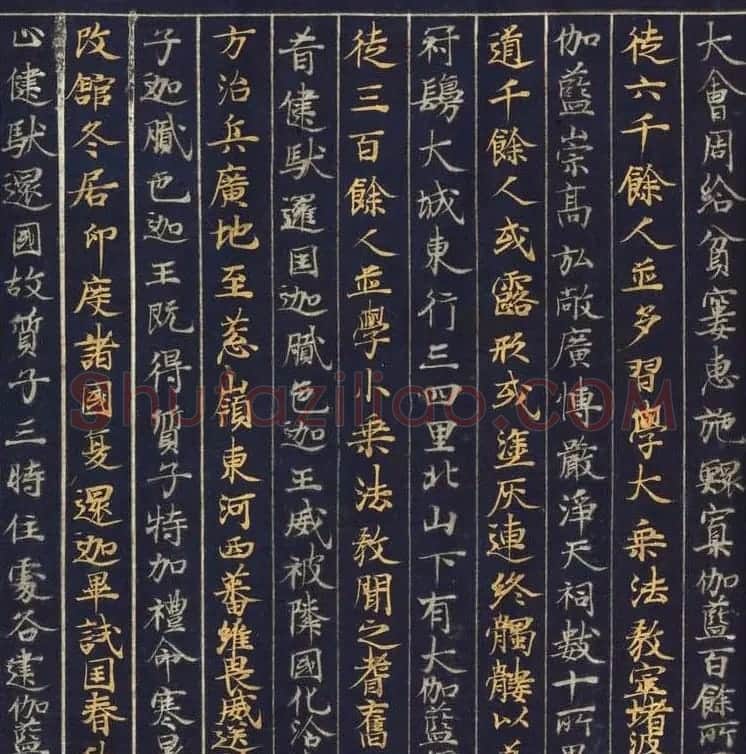 大會周給貧窶惠施鰥寡伽藍百餘所
徒六千餘人並多習學大乗法教窣堵波
伽藍崇髙弘敞廣博嚴淨天祠數十所
道千餘人或露形或塗灰連終髑髏以
冠鬘大城東行三四里北山下有大伽藍
徒三百餘人並學小乗法教聞之耆舊
昔健馱邏国迦膩色迦王威被隣國化洽
方治兵廣地至葱嶺東河西蕃維畏威送
子迦膩色迦王既得質子特加禮命寒暑
改館冬居印度諸國夏還迦畢試国春秋
止健馱邏國故質子三時住處各建伽藍
Shufaziliao.COM